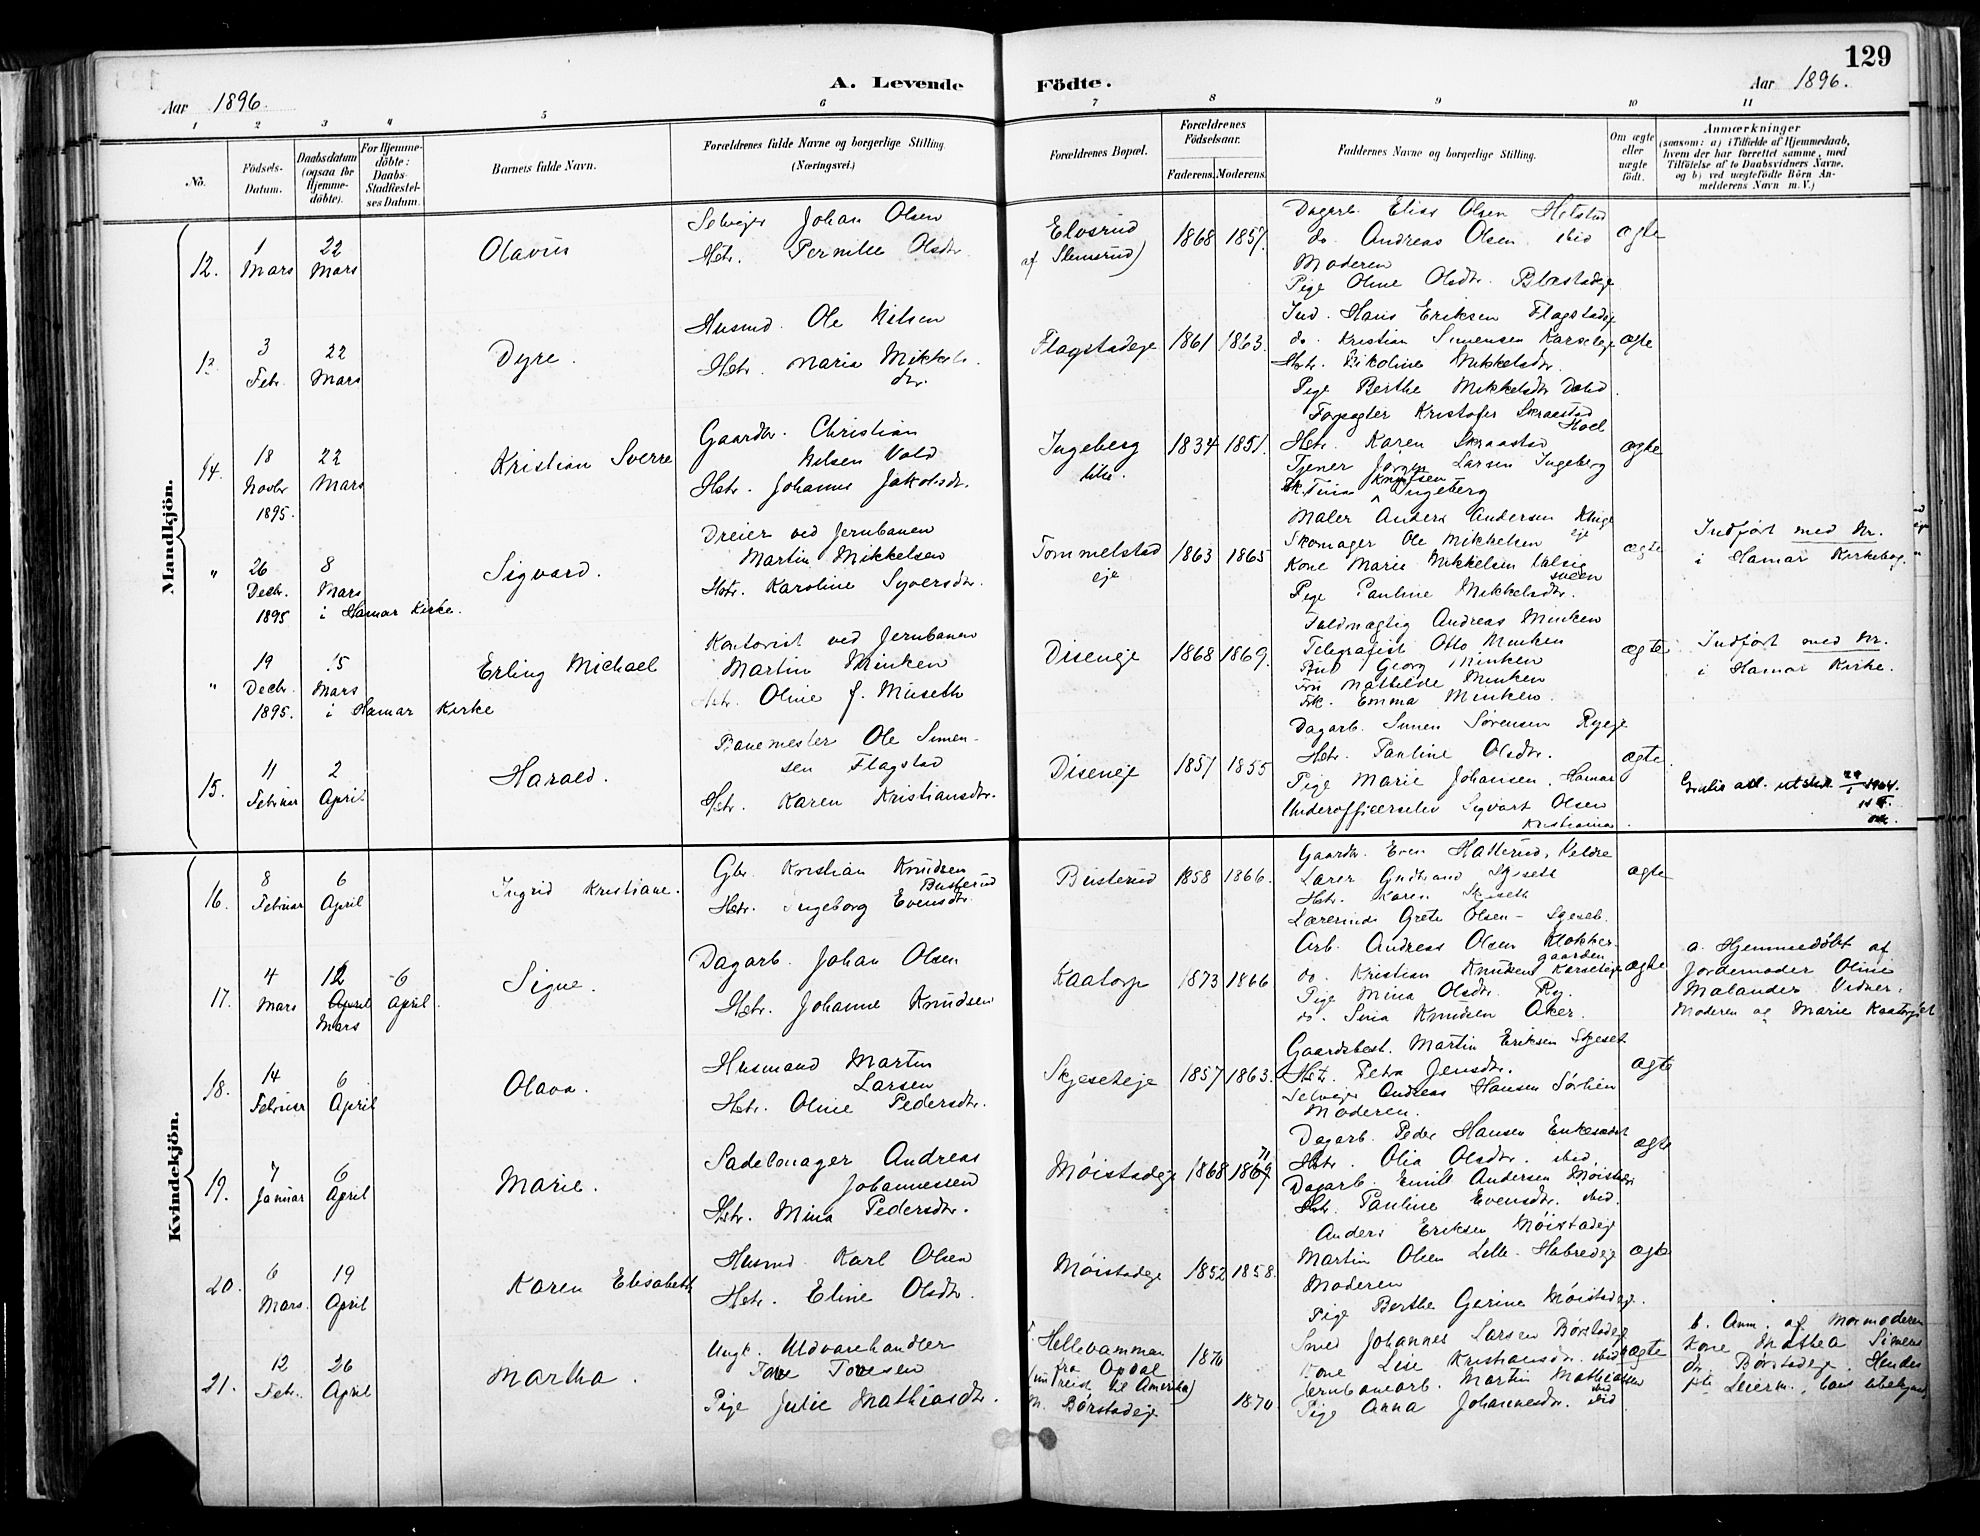 129
A. Levende Födte.
Aar 1896.
Aar 1896.
1 2 3 4 5 6 7 8 9 10 11
No.
Födsels-Datum.
Daabsdatum (ogsaa for Hjemme-döbte).
For Hjemme-döbte: Daabs-Stadfæstel-ses Datum.
Barnets fulde Navn.
Forældrenes fulde Navne og borgerlige Stilling. (Næringsvei.)
Forældrenes Bopæl.
Forældrenes Födselsaar.
Faderens. Moderens.
Faddernes Navne og borgerlige Stilling.
Om ægte eller uægte födt.
Anmærkninger
(saasom: a) i Tilfælde af Hjemmedaab, hvem der har forrettet samme, med Tilföielse af to Daabsvidners Navne, og b) ved uægtefödte Börn An-melderens Navn m. V.)
Mandkjön.
12. 1 Mars 22 Mars
Olavus
Selveier Johan Olsen
Hstr. Pernille Olsdtr.
Elvsrud
af Slemsrud)
1868 1857.
Dagarb. Elias Olsen Helstad
do. Andreas Olsen ibid
Moderen
Pige Oline Olsdtr. Blæstadeje
ægte
13 3 Febr. 22 Mars
Dyre.
Husmd. Ole Nilsen
Hstr. Maria Mikkels
dtr.
Flagstadeje
1861 1863.
Ind. Hans Eriksen Flagstadeje
do. Kristian Simensen Karseleje
Hstr. Nikoline Mikkelsdtr.
Pige Berthe Mikkelsdtr Dalid
ægte
14. 18 Novbr 1895. 22 Mars
Kristian Sverre
Gaardbr. Christian
Nilsen Vold
Hstr. Johanne Jakobsdtr.
Ingeberg
lille.
1834 1851.
Forpagter Kristofer Skraastad
Hoel
Hstr. Karen Skraastad
Tjener Jørgen Larsen Ingeberg
Frk. Tina Knutsen Ingeberg
ægte
" 26 Decbr. 1895 8 Mars i Hamar Kirke.
Sigvard.
Dreier ved Jernbanen
Martin Mikkelsen
Hstr. Karoline Syversdtr.
Tommelstad
eje
1863 1865
Maler Anders Andersen Kluge
eje
Skomager Ole Mikkelsen
Kone Marie Mikkelsen Valsig
sveen
Pige Pauline Mikkelsdtr.
ægte
Indført med Nr.
i Hamar Kirkebog.
" 19 Decbr. 1895. 15 Mars i Hamar Kirke
Erling Michael
Kontorist ved Jernbanen
Martin Minken
Hstr. Oline f. Museth
Diseneje
1868 1869.
Fuldmægtig Andreas Minken
Telegrafist Otto Minken
Stud Georg Minken
Fru Mathilde Minken
Frk. Emma Minken.
ægte
Indført med Nr.
i Hamar Kirke.
15. 11 Februar 2 April
Harald.
Banemester Ole Simen-
sen Flagstad
Hstr. Karen Kristiansdtr.
Diseneje
1851 1855
Dagarb. Simen Sørensen Ryeje
Hstr. Pauline Olsdtr.
Pige Marie Johansen. Hamar
Underofficerselev Sigvart Olsen
Kristiania.
ægte.
Gratis att. utstedt 1904.
Kvindekjön.
16. 8 Februar 6 April
Ingrid Kristiane.
Gbr. Kristian Knudsen
Busterud
Hstr. Ingeborg Evensdtr.
Busterud
1858 1866.
Gaardbr. Even Hatterud, Veldre
Lærer Gudbrand Skjeseth
Hstr. Karen Skjeseth
Lærerinde Grete Olsen - Skjeset.
ægte
17. 4 Mars 12 April Mars 6 April.
Signe.
Dagarb. Johan Olsen
Hstr. Johanne Knudsen
Kaatorp
1873 1866
Arb. Andreas Olsen Klokker-
gaarden
do. Kristian Knudsen Karseleje
Pige Mina Olsdtr. Ry.
do. Sina Knudsen Aker.
ægte
a. Hjemmedøbt af
Jordemoder Oline
Malander Vidner:
Moderen og Marie Kaatorpet
18. 14 Februar 6 April
Olava.
Husmand Martin
Larsen
Hstr. Oline Pedersdtr.
Skjeseteje
1857 1863.
Gaardsbest. Martin Eriksen Skjeset
Hstr. Petra Jensdtr.
Selveier Andreas Hansen Sørlien
Moderen.
ægte
19. 7 Januar 6 April
Marie.
Sadelmager Andreas
Johannessen
Hstr. Mina Pedersdtr.
Møistadeje
1868 1869 71
Dagarb. Peder Hansen Enkesædet
Hstr. Olia Olsdtr. ibid
Dagarb. Emil Andersen Møistadeje
Hstr. Pauline Evensdtr. ibid.
ægte
20. 6 Mars. 19 April
Karen Elisabeth
Husmd. Karl Olsen
Hstr. Eline Olsdtr.
Møistadeje
1852 1858.
Anders Eriksen Møistadeje
Martin Olsen Lille-Hubredeje
Moderen
Pige Berthe Gerine Møistadeje.
ægte
21. 12 Febr. 26 April
Martha.
Ungk. Uldvarehandler
Tore Toresen
Pige Julie Mathiasdtr.
F. Hellevamman
fra Opdal
(nu reist til Amerika)
M. Børstadeje
1870 1870.
Smed Johannes Larsen Børstadeje
Kone Lise Kristiansdtr. ibid
Jernbanearb. Martin Mathiassen
ibid
Pige Anna Johannesdtr.
uægte
b. Anm. af Mormoderen
Kone Mathea Simens
dtr. Børstadeje. Hendes
1ste Leierm., hans ubekjendt